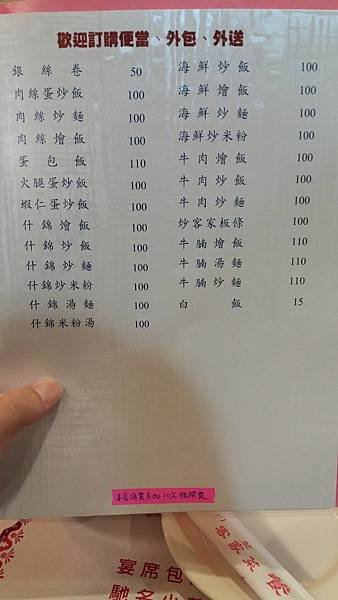 歡迎訂購便當、外包、外送
銀絲卷 50
肉絲蛋炒飯 100
肉絲炒麵 100
肉絲燴飯 100
蛋包飯 110
火腿蛋炒飯 100
蝦仁蛋炒飯 100
什錦燴飯 100
什錦炒飯 100
什錦炒麵 100
什錦炒米粉 100
什錦湯麵 100
什錦米粉湯 100
海鮮炒飯 100
海鮮燴飯 100
海鮮炒麵 100
海鮮炒米粉 100
牛肉燴飯 100
牛肉炒飯 100
牛肉炒麵 100
炒客家板條 100
牛腩燴飯 110
牛腩湯麵 110
牛腩炒麵 110
白飯 15
本店消費另加10%服務費
客家菜
宴席包
馳名小